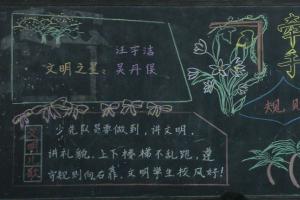 汪宇洁
文明之星：吴丹侯
牵
手
规则
文明小歌
少先队员要做到，讲文明，
讲礼貌，上下楼梯不乱跑，遵
守规则向右靠，文明学生校风好！